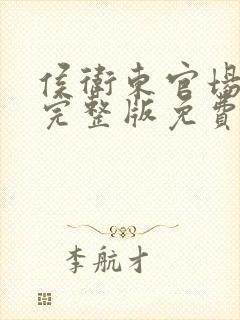 侯衛東官場
完整版免費
李航才